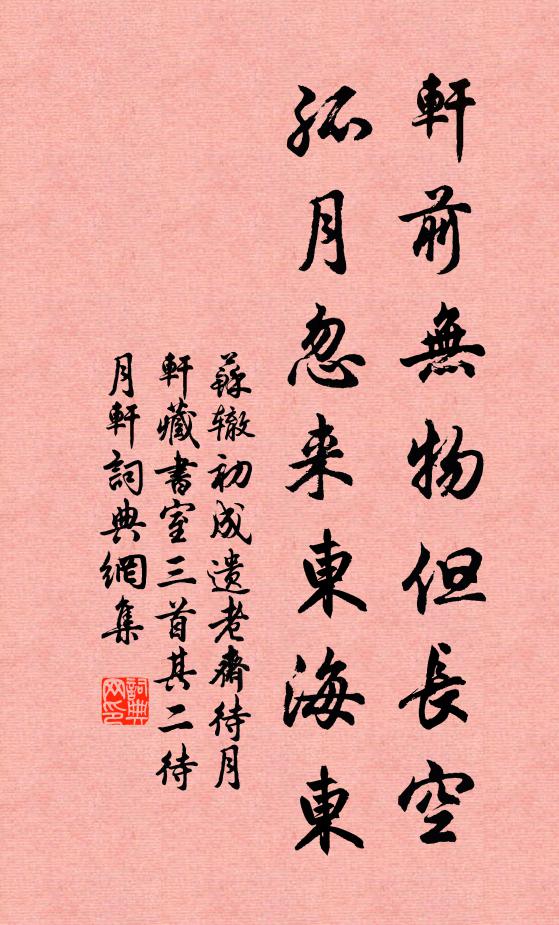 軒前無物但長空
孤月忽来東海東
蘇辙初成遗老齋待月
軒藏書室三首其二待
月軒詞典網集
詞典网印